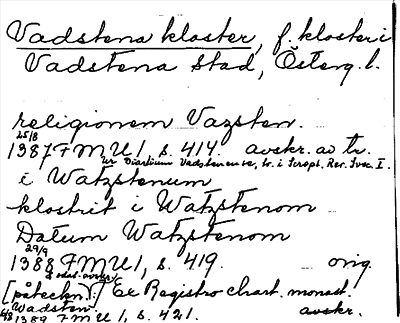 Vadstena kloster, f. kloster i
Vadstena stad, Österg. l.
religionem Vazsten.
25/8
1387 FMU 1, s. 414. avskr. av tr.
ur Diarium Vadstenense, tr. i Script. Rer. Svec. I.
i Watzstenum
klostrit i Watzstenom
Datum Watzstenom
29/9
1388 FMU 1, s. 419. orig.
[påteckn.]: Ex Registro chart. monast.
Wadsten.
1389 FMU 1, s. 421. avskr.